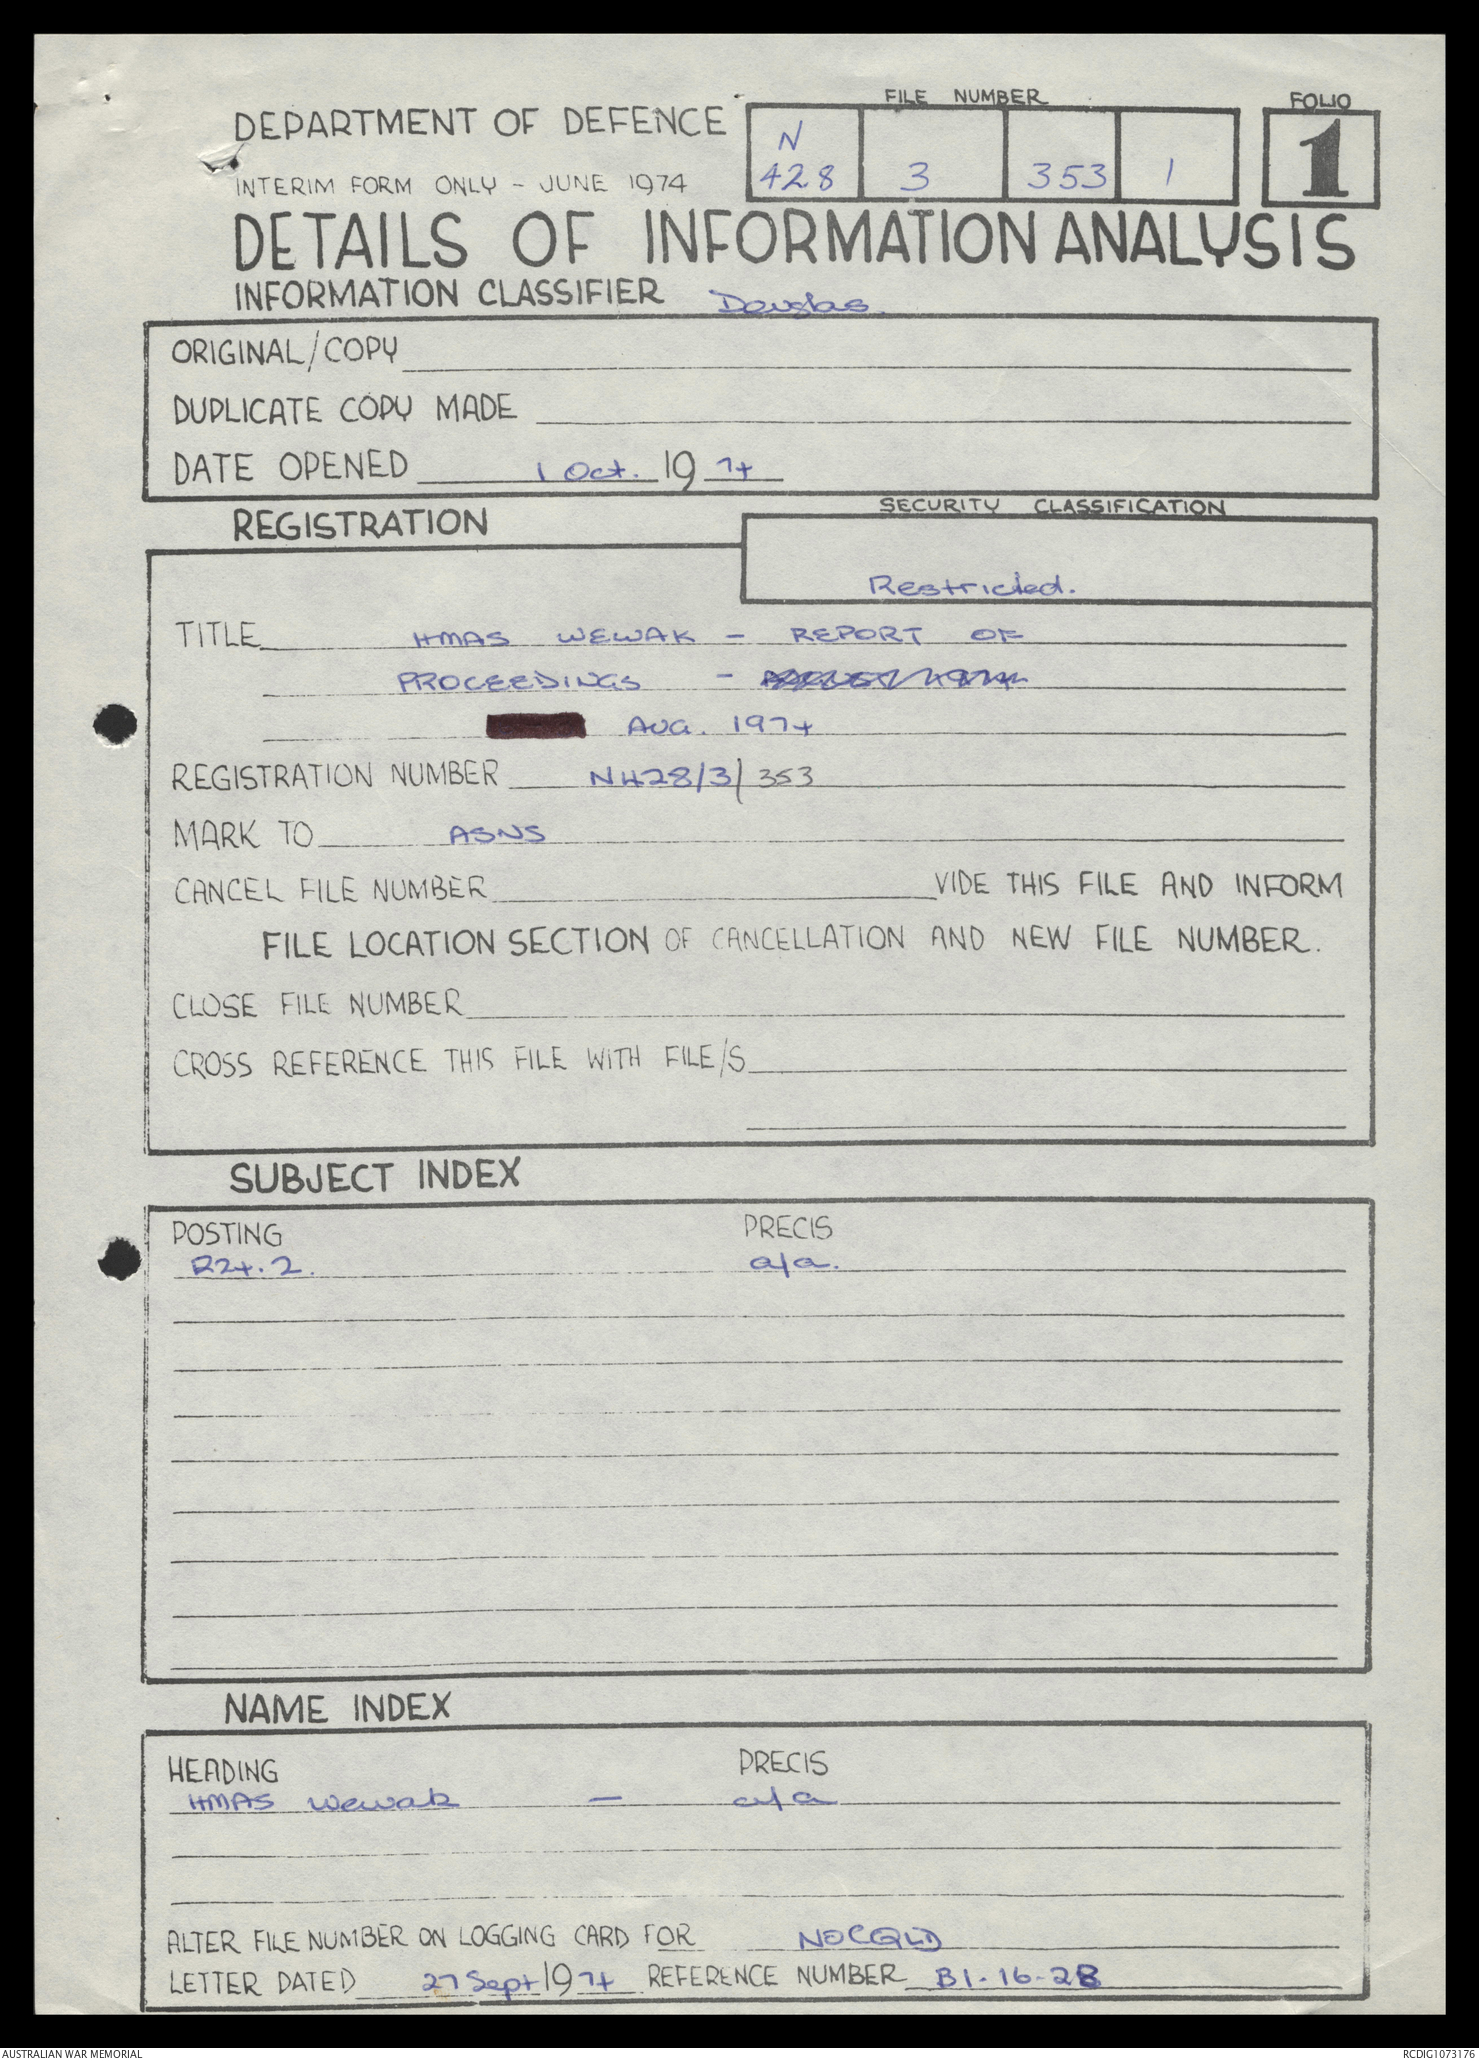 FILE NUMBER
FOLIO
DEPARTMENT OF DEFENCE
N
428 3 353 1
1
INTERIM FORM ONLY - JUNE 1974
DETAILS OF INFORMATION ANALYSIS
INFORMATION CLASSIFIER Douglas.
ORIGINAL/COPY
DUPLICATE COPY MADE
DATE OPENED 1 Oct. 1974
SECURITY CLASSIFICATION
REGISTRATION
Restricted.
TITLE HMAS WEWAK - REPORT OF
PROCEEDINGS -
AUG. 1974
REGISTRATION NUMBER N428/3/353
MARK TO ASNS
CANCEL FILE NUMBER VIDE THIS FILE AND INFORM
FILE LOCATION SECTION OF CANCELLATION AND NEW FILE NUMBER.
CLOSE FILE NUMBER
CROSS REFERENCE THIS FILE WITH FILE/S
SUBJECT INDEX
POSTING PRECIS
R24.2. a/a.
NAME INDEX
HEADING PRECIS
HMAS Wewak - a/a
ALTER FILE NUMBER ON LOGGING CARD FOR NOCQLD
LETTER DATED 27 Sept 1974 REFERENCE NUMBER B1-16-2B
AUSTRALIAN WAR MEMORIAL
RCDIG1073176